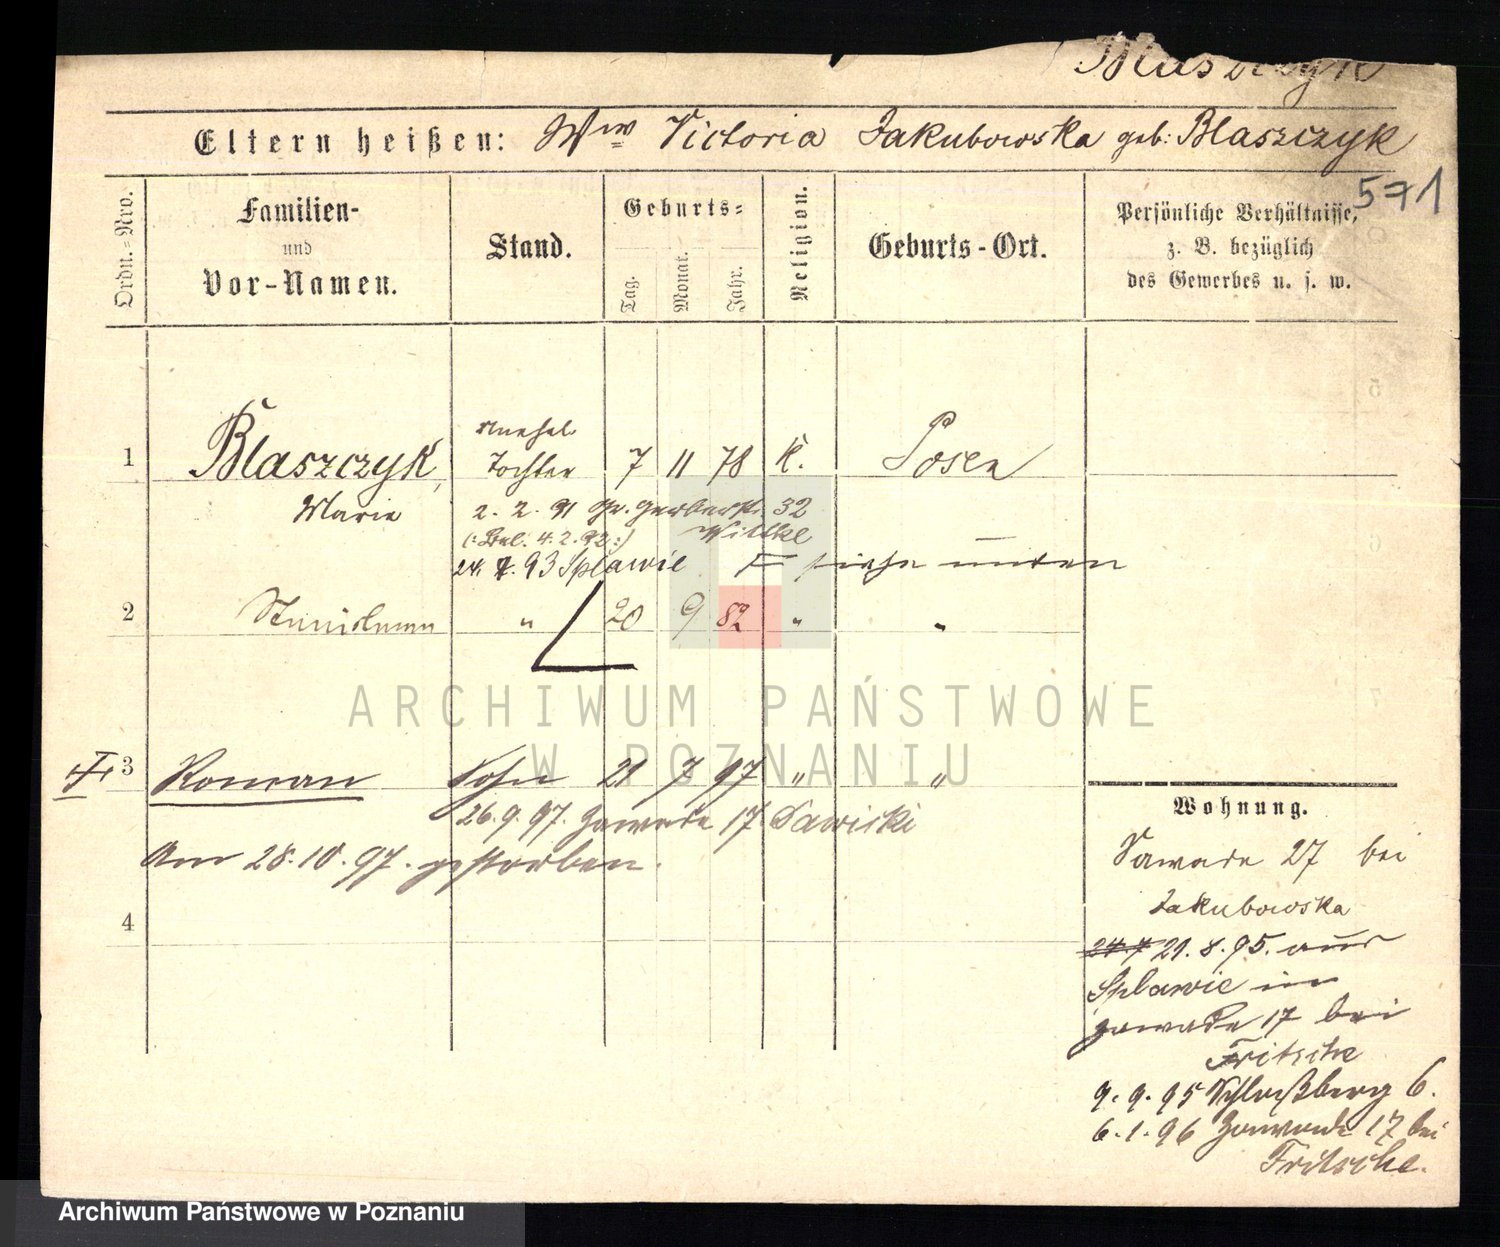 Blaszczyk
Eltern heißen: Ww Victoria Jakubowska geb: Blaszczyk
571
Ordn.-Nro.
Familien-
und
Vor-Namen.
Stand.
Geburts-
Tag.
Monat.
Jahr.
Religion.
Geburts-Ort.
Persönliche Verhältnisse,
z. B. bezüglich
des Gewerbes u. s. w.
unehel.
1 Blaszczyk, Tochter 7 11 78 K. Posen
Marie 2. 2. 91 Gr. Gerberstr. 32
4. 2. 92 :) Wittke
93 Splawie siehe unten
2 Stanislawa " 20 9 82 " "
ARCHIWUM PAŃSTWOWE
W POZNANIU
3 Roman Sohn 21 7 97 " "
26. 9. 97. Zawade 17 Sawicki
Am 28. 10. 97. gestorben.
4
Wohnung.
Zawade 27 bei
Jakubowska
24. 7 21. 8. 95. aus
Splawie in
Zawade 17 bei
Fritsche
9. 9. 95 Schloßberg 6.
6. 1. 96 Zawade 17 bei
Fritsche.
Archiwum Państwowe w Poznaniu